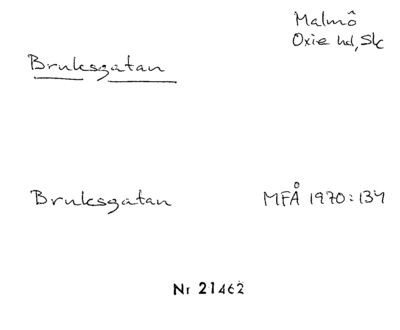 Malmö
Oxie hd, Sk
Bruksgatan
Bruksgatan MFÅ 1970:134
Nr 21462